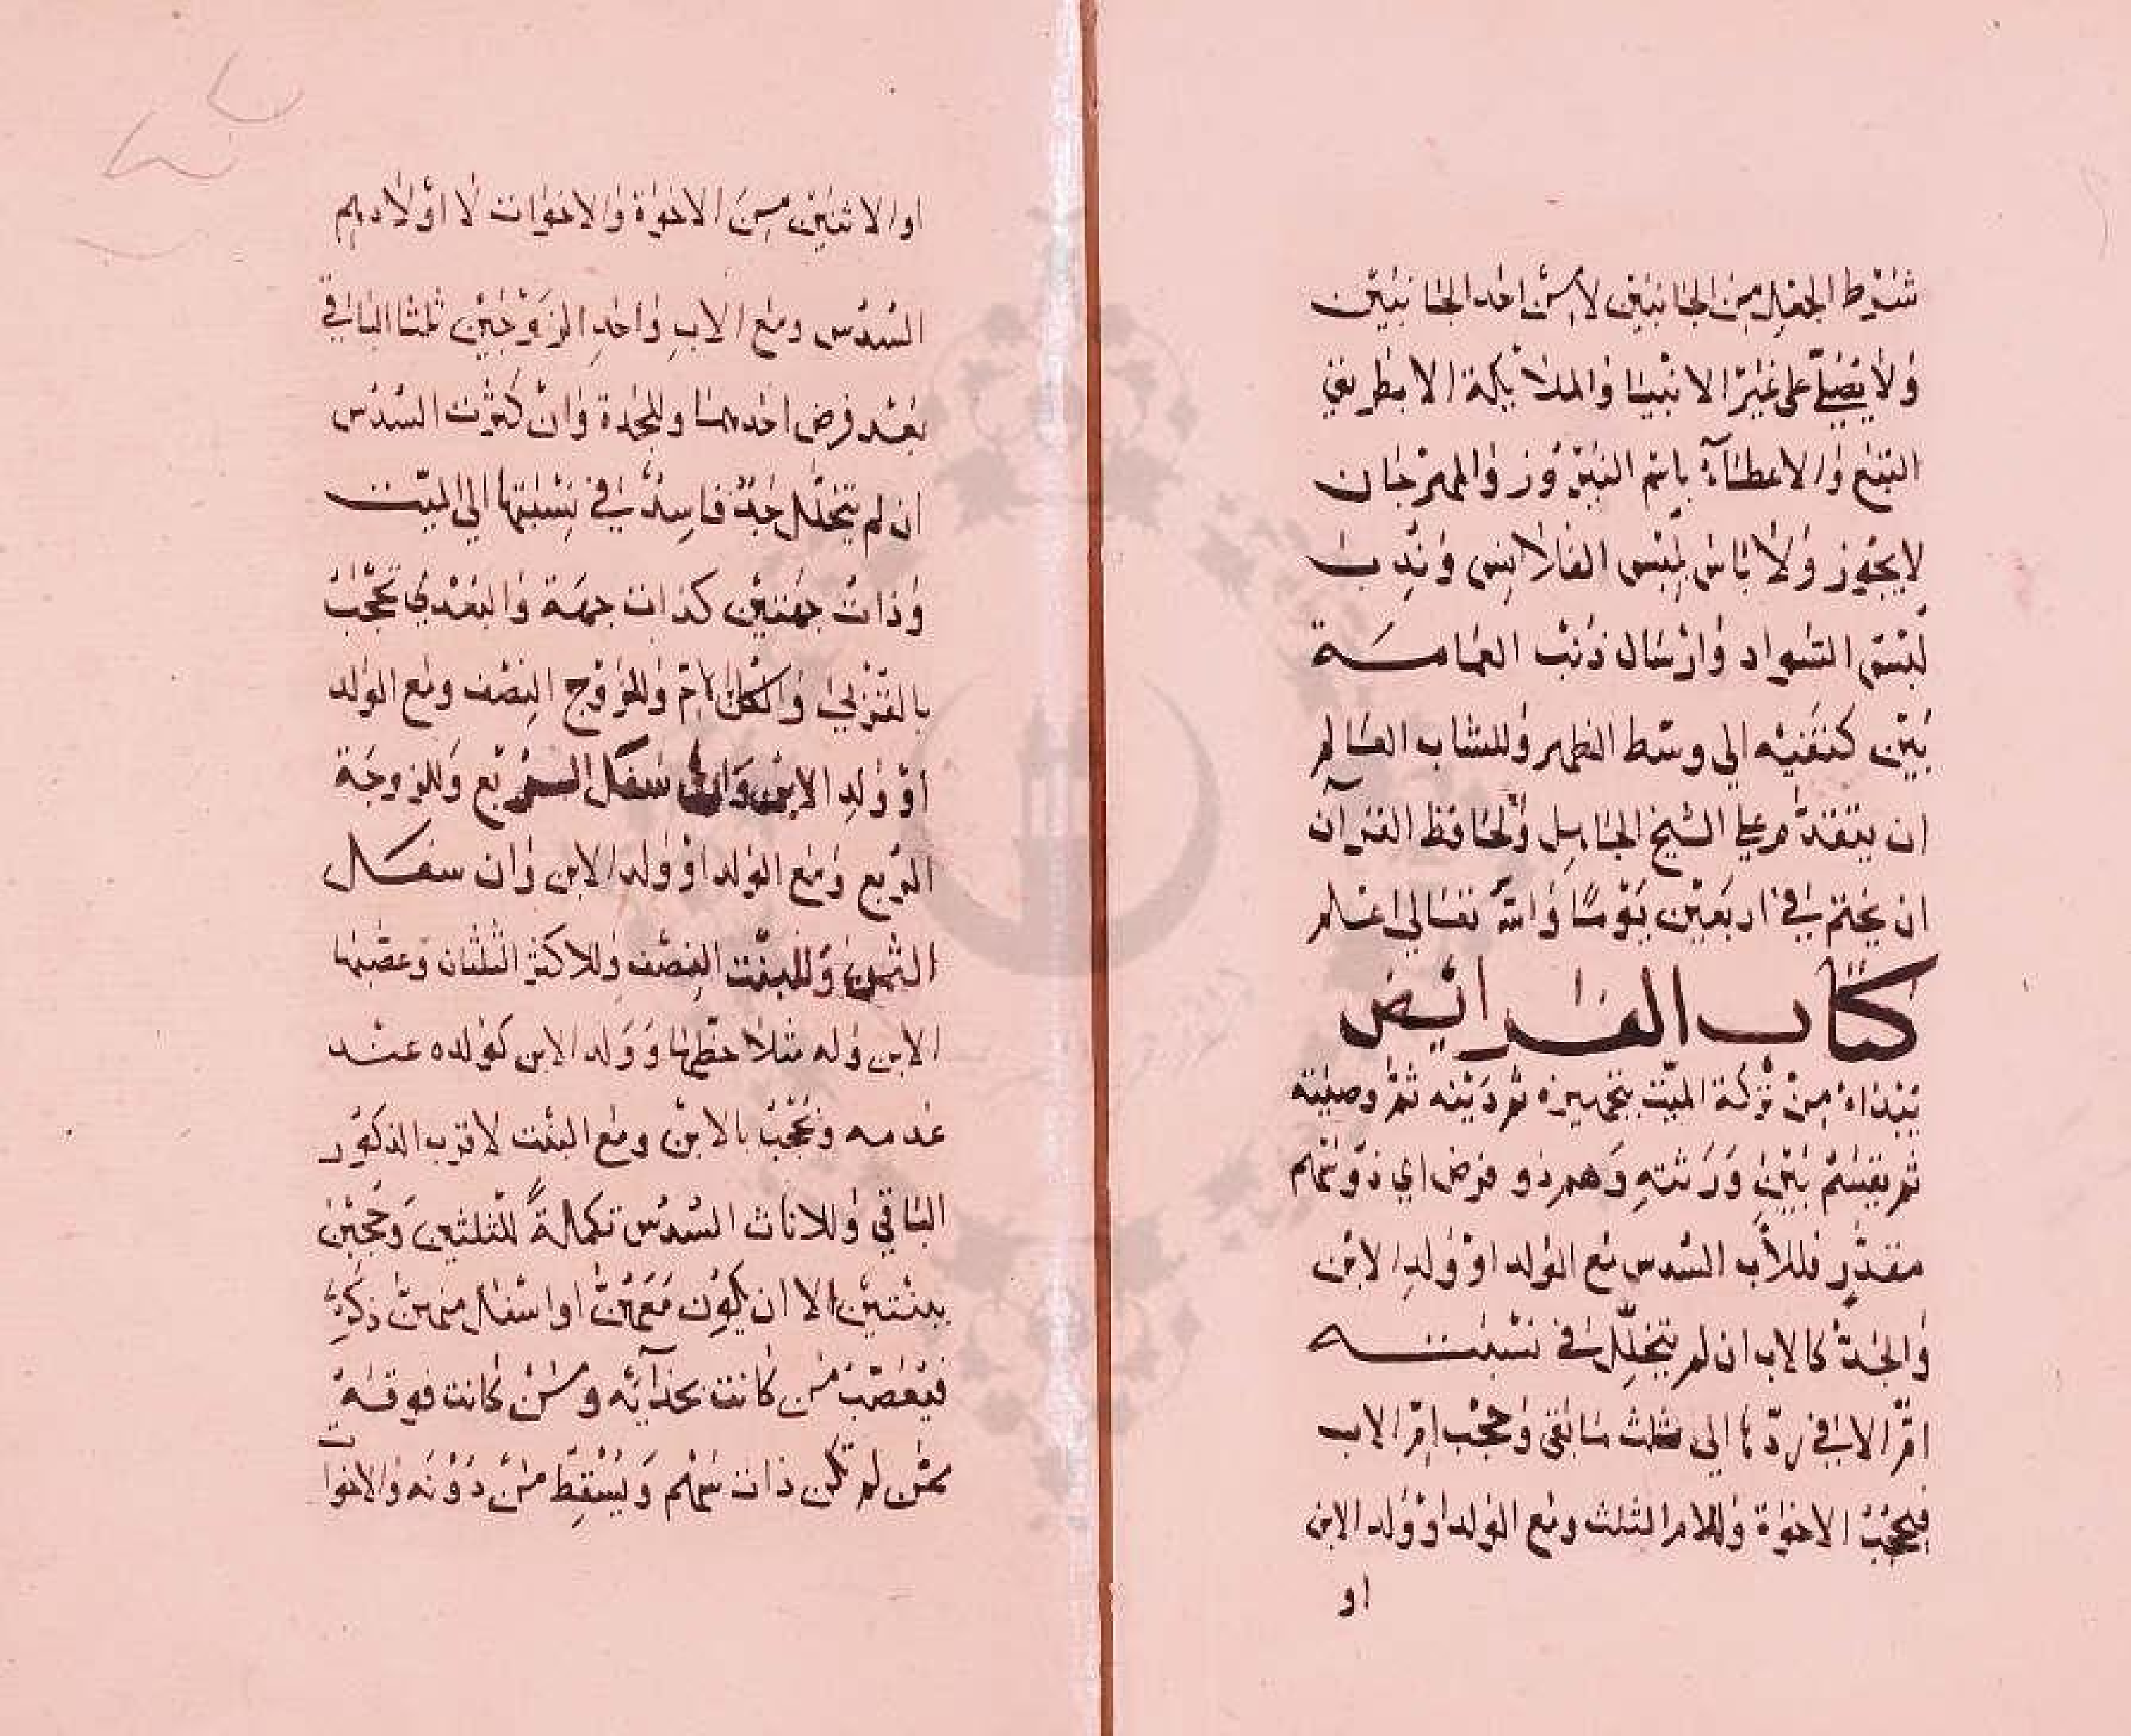 شرط الجعل من الجانبين لا من احد الجانبين
ولا يصلي على غير الانبيا والملائكة الا بطريق
التبع والاعطاء باسم النيروز والمهرجان
لا يجوز ولا باس بلبس القلانس وندب
لبس السواد وارسال ذنب العمامة
بين كتفيه الي وسط الظهر وللشاب العالم
ان يتقدم علي الشيخ الجاهل ولحافظ القرآن
ان يختم في اربعين يوما والله تعالي اعلم
كتاب الفرائض
يبداء من تركة الميت بتجهيزه ثم دينه ثم وصيته
ثم يقسم بين ورثته وهم ذو فرض اي ذو سهم
مقدر فللأب السدس مع الولد او ولد الابن
والجد كالاب ان لم يتخلل في نسبته
ام الا في ردها الي ثلث مابقي وحجب ام الاب
فيحجب الاخوة وللام الثلث ومع الولد او ولد الابن
او
او الاثنين من الاخوة والاخوات لا اولادهم
السدس ومع الاب واحد الزوجين ثلث الباقي
بعد فرض احدهما وللجدة وان كثرت السدس
ان لم يتخلل جد فاسد في نسبتها الي الميت
وذات جهتين كذات جهة والبعدي تحجب
بالقربي والكل بالام وللزوج النصف ومع الولد
او ولد الابن وان سفل الربع وللزوجة
الربع ومع الولد او ولد الابن وان سفل
الثمن وللبنت النصف وللاكثر الثلثان وعصبها
الابن وله مثلا حظها وولد الابن كولده عند
عدمه وتحجب بالابن ومع البنت لاقرب الذكور
الباقي وللاناث السدس تكملة للثلثين وحجبن
ببنتين الا ان يكون معهن او اسفل منهن ذكر
فيعصب من كانت بحذائه ومن كانت فوقه
ممن لم تكن ذات سهم ويسقط من دونه والاخوات